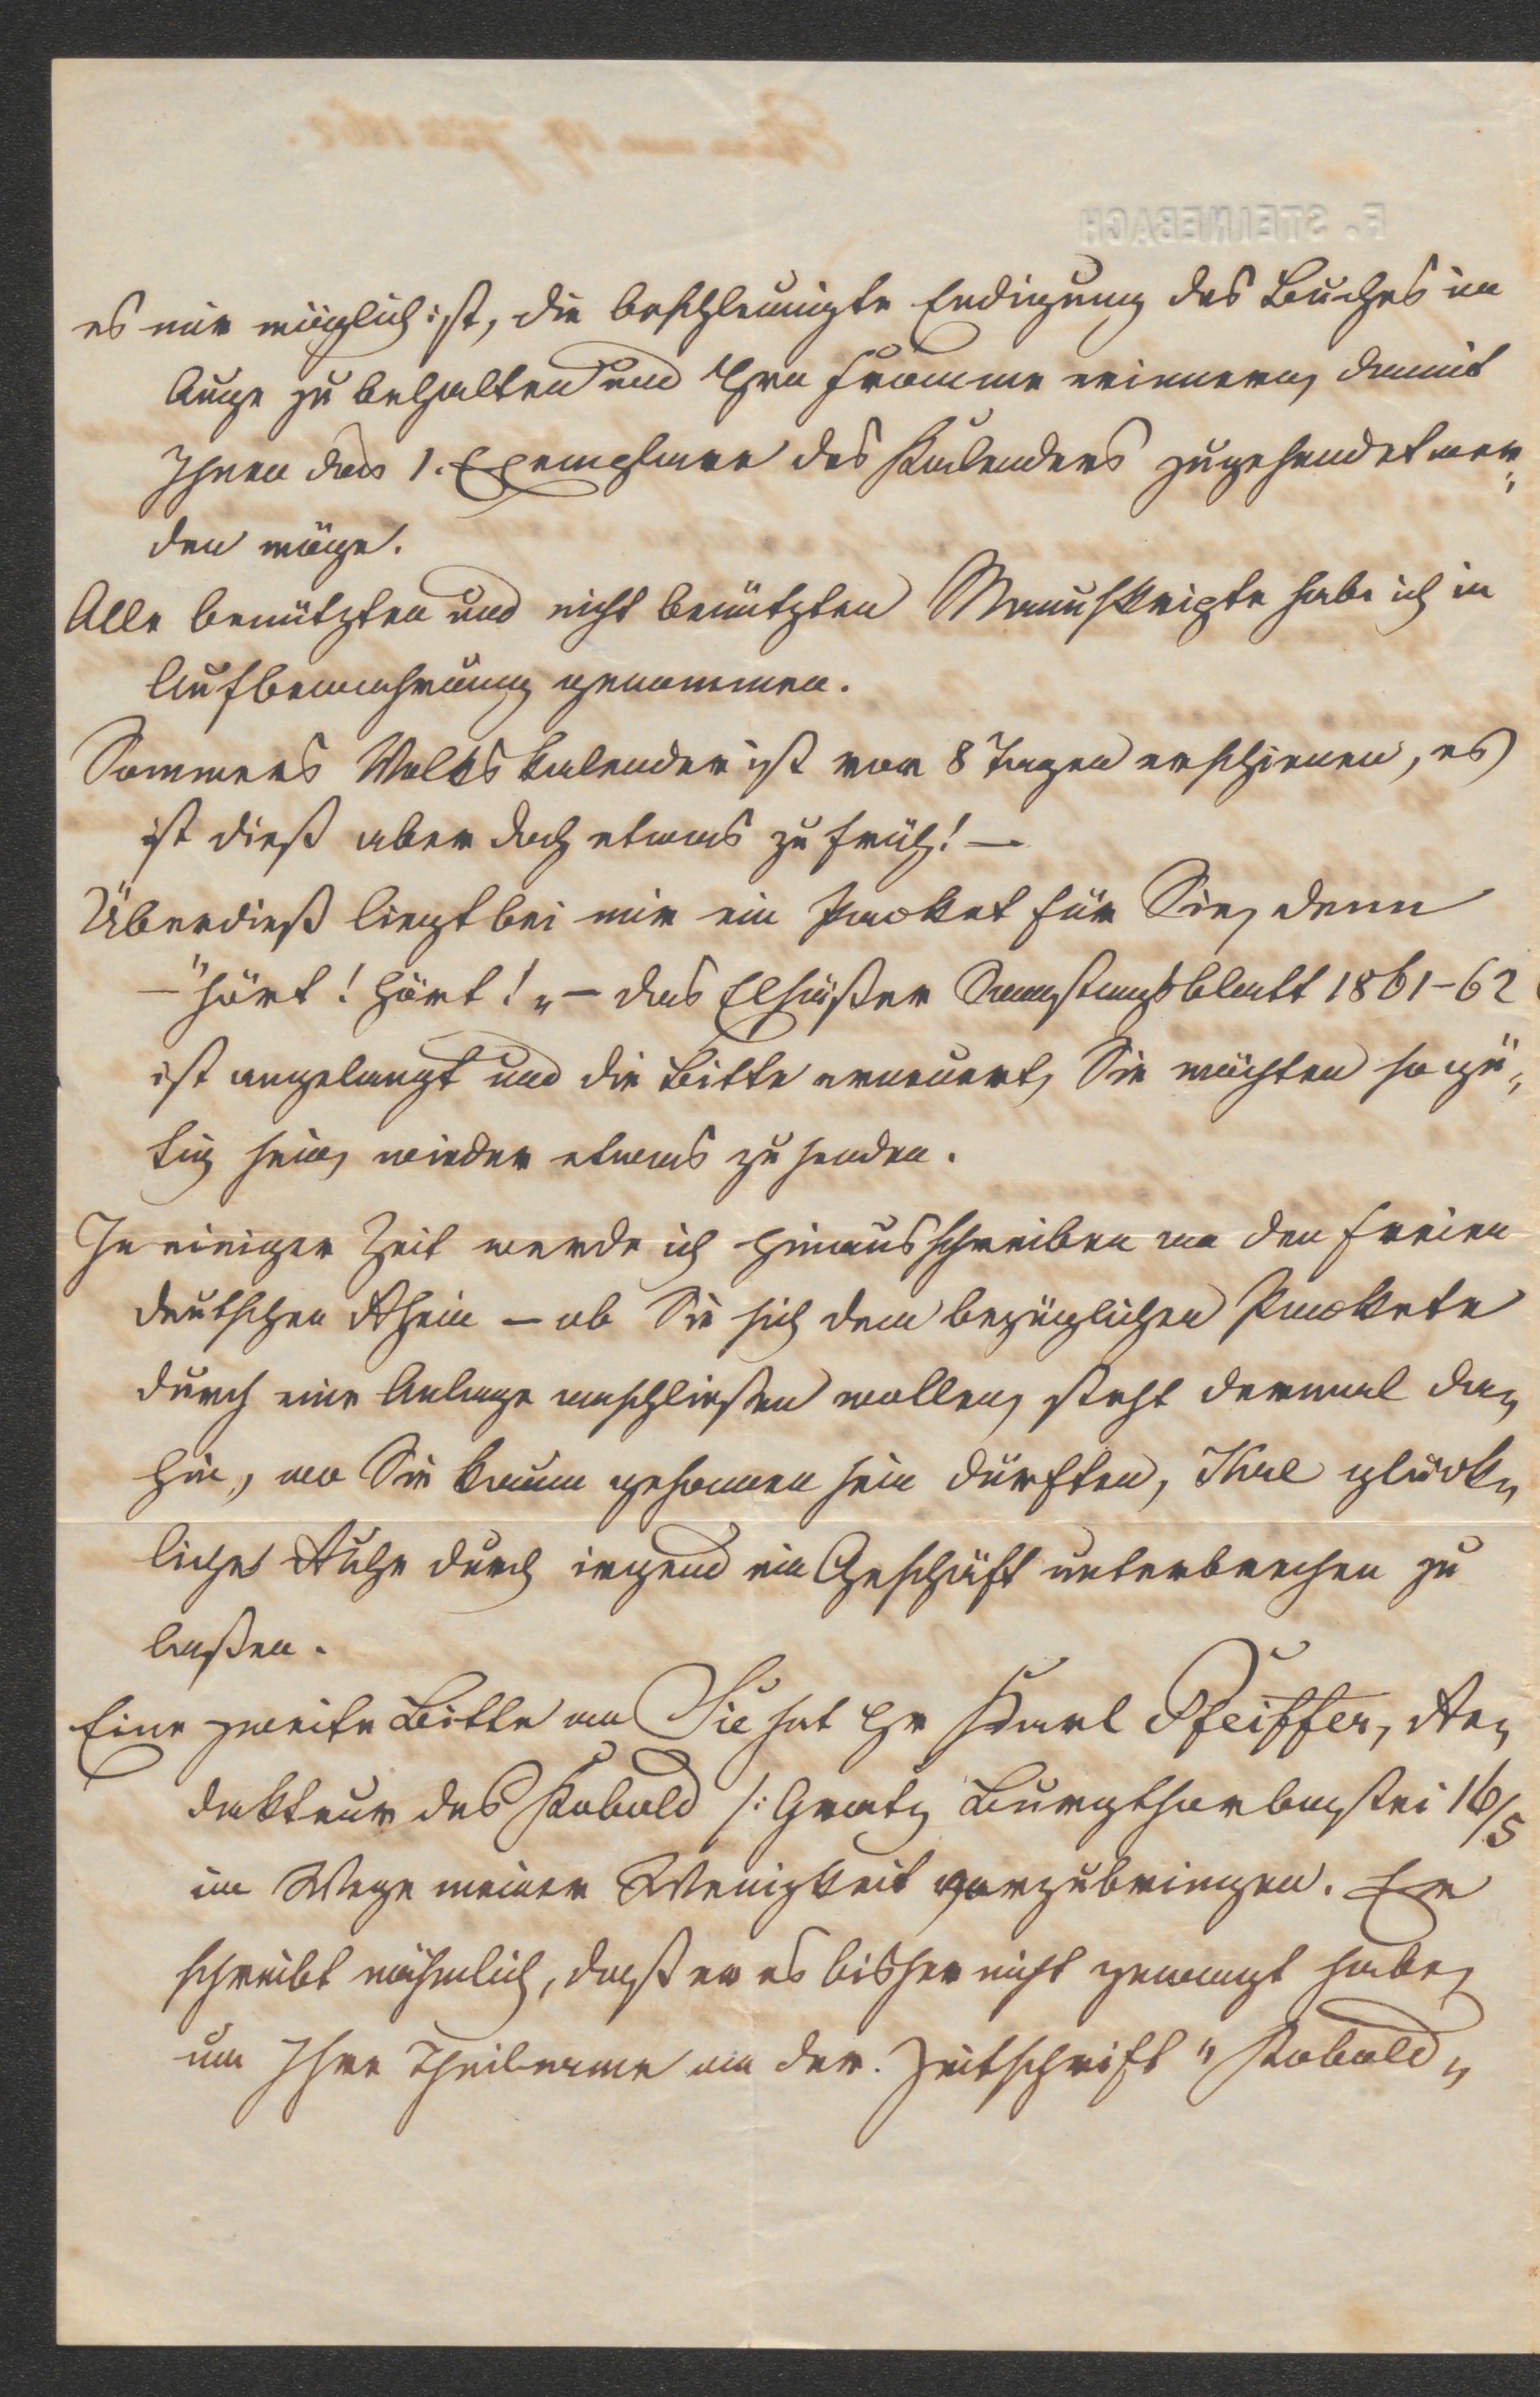 F. STEINEBACH
es mir möglich ist, die beschleunigte Endigung des Buches im
Auge zu behalten und Hrn Fromme erinnern, damit
Ihnen das 1. Exemplare des Kalenders zugesendet wer„
den möge.
Alle benützten und nicht benützten Manuskripte habe ich in
Aufbewahrung genommen.
Sommers Volkskalender ist vor 8 Tagen erschienen, es
ist dieß aber doch etwas zu früh! —
Überdieß liegt bei mir ein Packet für Sie, denn
— "hört! hört!„ — das Elsäßer Samstagsblatt 1861-62
ist angelangt und die Bitte erneuert, Sie möchten so gü„
tig sein, wieder etwas zu senden.
In einiger Zeit werde ich hinausschreiben an den freien
deutschen Rhein — ob Sie sich dem bezüglichen Packete
durch eine Anlage anschließen wollen, steht dermal da„
hin, wo Sie kaum gesonnen sein dürften, Ihre glück„
liche Ruhe durch irgend ein Geschäft unterbrechen zu
laßen.
Eine zweite Bitte an Sie hat Hr Karl Pfeiffer, Re„
dakteur des Kobold /: Gratz Burgthorbastei 16/5
im Wege meiner Wenigkeit vorzubringen. Er
schreibt nähmlich, daß er es bisher nicht gewagt habe,
um Ihre Theilname an der Zeitschrift "Kobold„